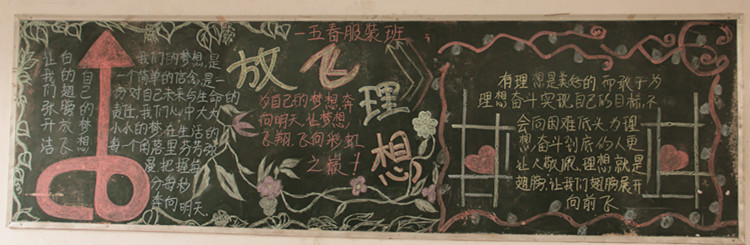 一五春服装班
放飞理想
让我们张开洁
白的翅膀放飞
自己的梦想
我们的梦想,是
一个简单的信念,是一
份对自己未来与生命的
责任,我们心中大大
小小的梦在生活的
每一个角落里芬芳弥
漫把握每
一分每秒
奔向明天.
为自己的梦想,奔
向明天,让梦想
飞翔,飞向彩虹
之巅!
有理想是美好的而敢于为
理想奋斗实现自己的目标,不
会向困难低头为理
想奋斗到底的人更
让人敬佩.理想就是
翅膀,让我们翅膀展开
向前飞